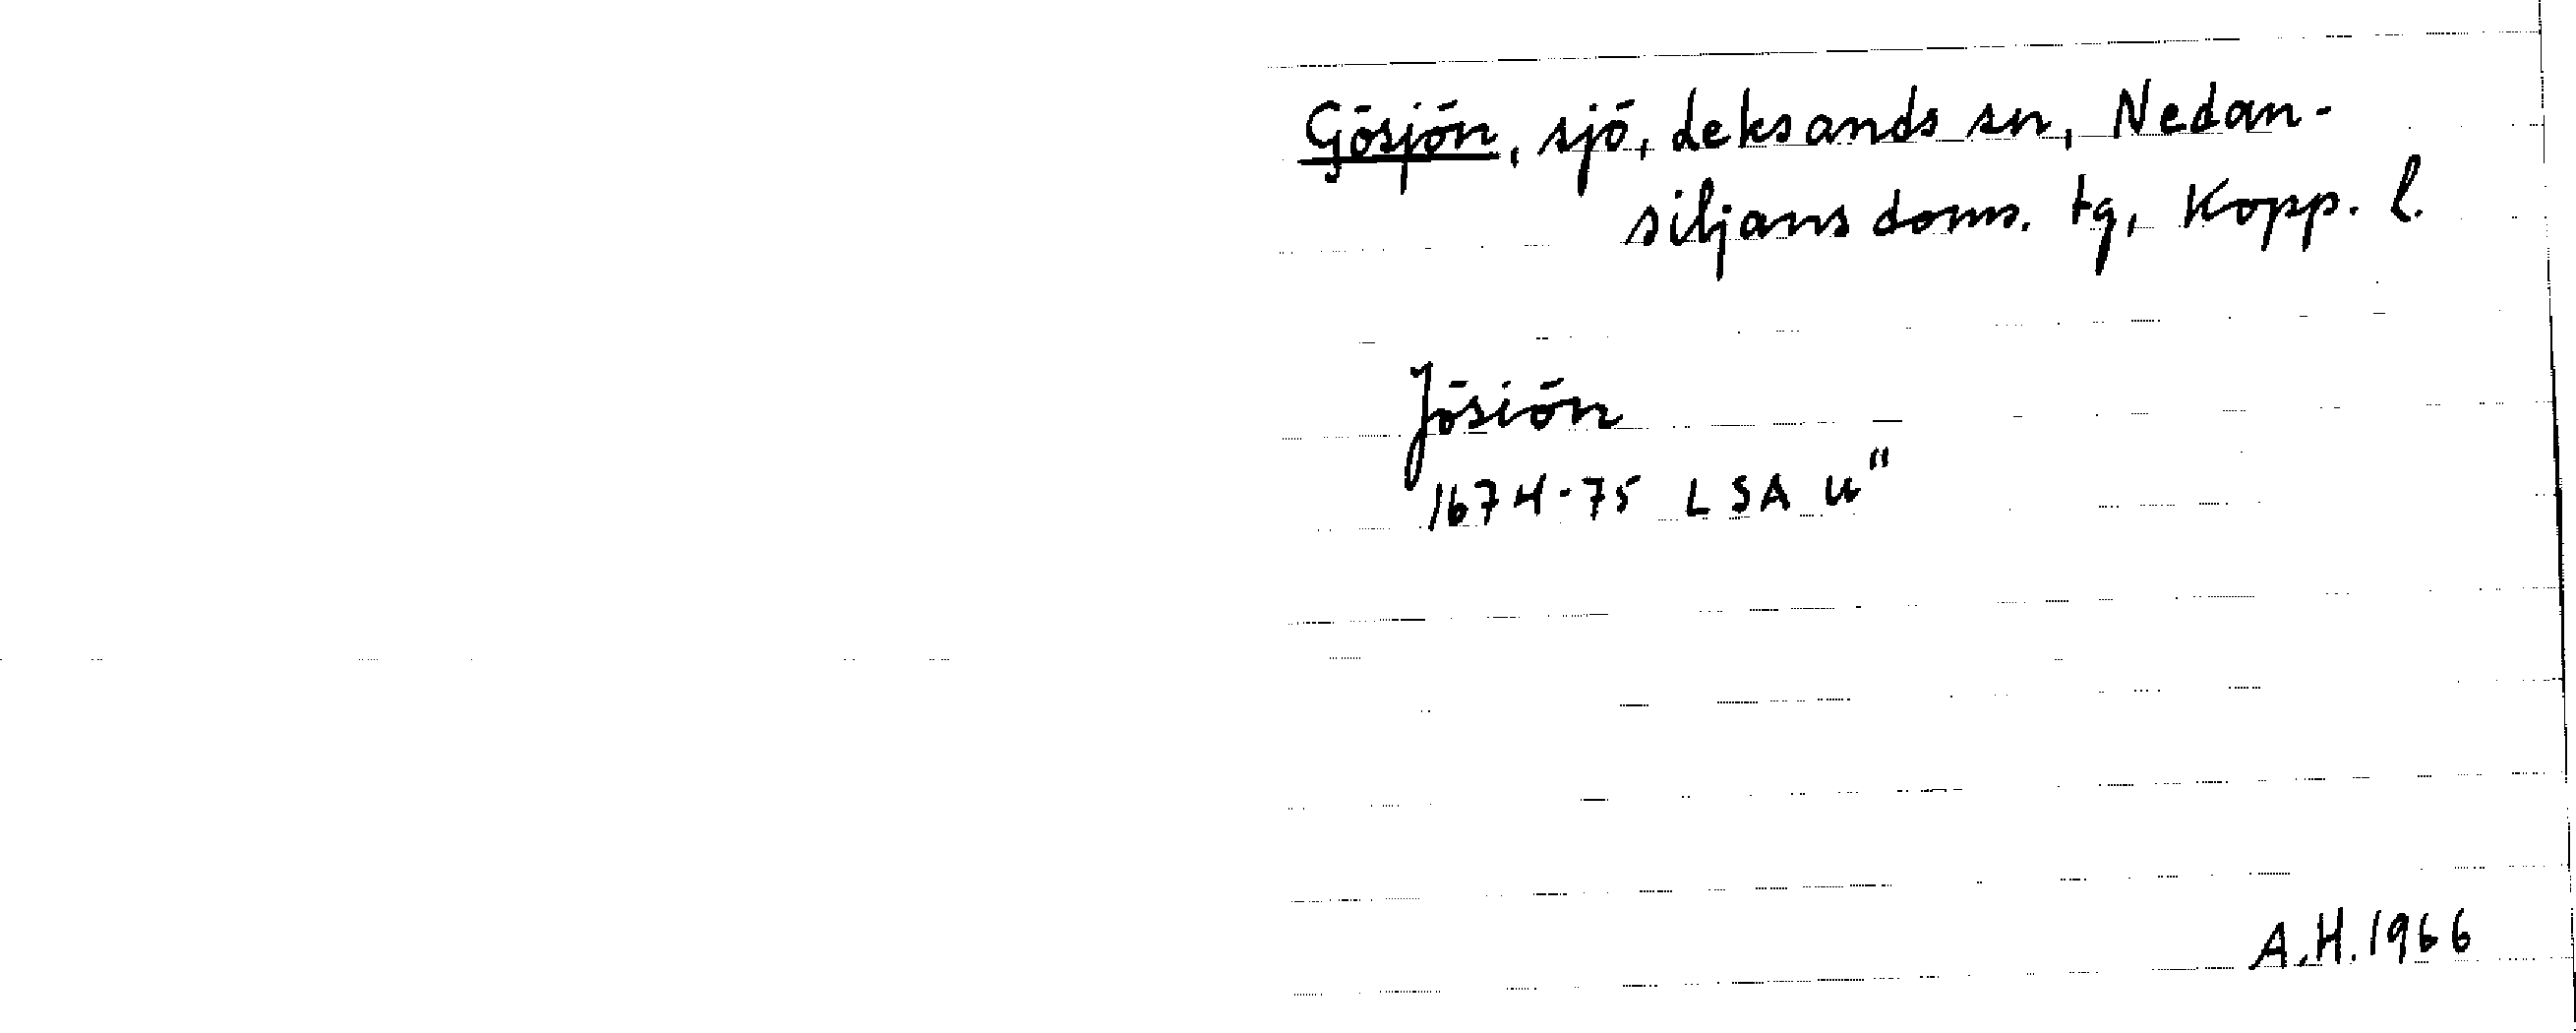 Gösjön, sjö, Leksands sn, Nedan-
siljans doms. tg, Kopp. l.
Jösiön
1674-75 LSA u"
A.H. 1966